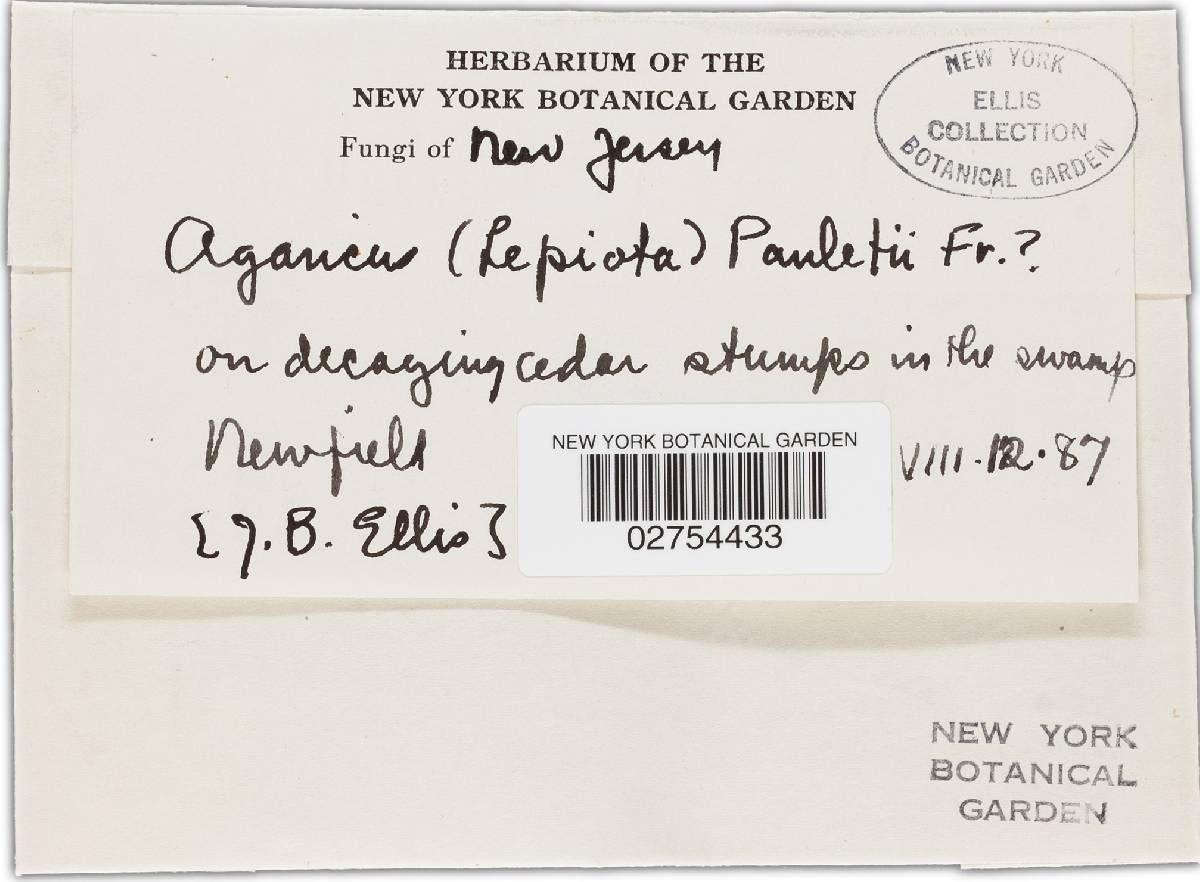 HERBARIUM OF THE
NEW YORK BOTANICAL GARDEN
Fungi of New Jersey
NEW YORK
ELLIS
COLLECTION
BOTANICAL GARDEN
Agaricus (Lepiota) Pauletii Fr.?
on decaying cedar stumps in the swamp
Newfield
VIII.12.87
[J. B. Ellis]
NEW YORK BOTANICAL GARDEN
02754433
NEW YORK
BOTANICAL
GARDEN